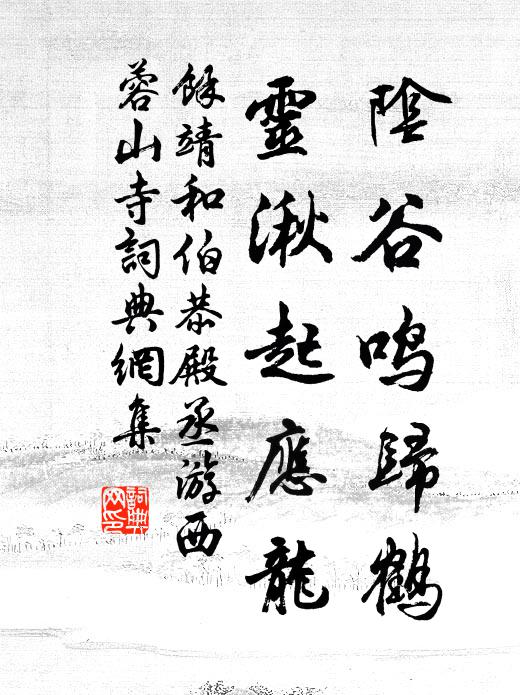 陰谷鳴歸鶴
靈湫起應龍
餘靖和伯恭殿丞游西
蓉山寺詞典網集
詞典
网印